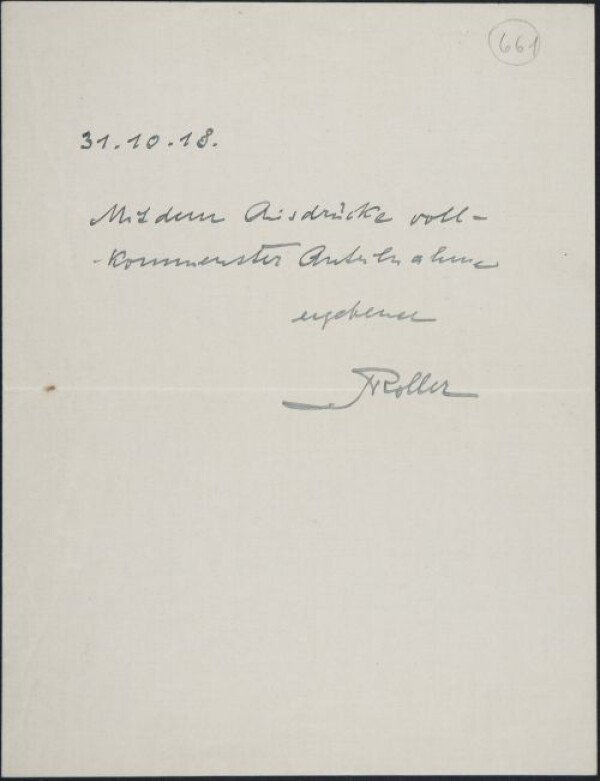 661
31.10.18.
Mit dem Ausdrücke voll-
kommenster Anteilnahme
ergebener
Roller